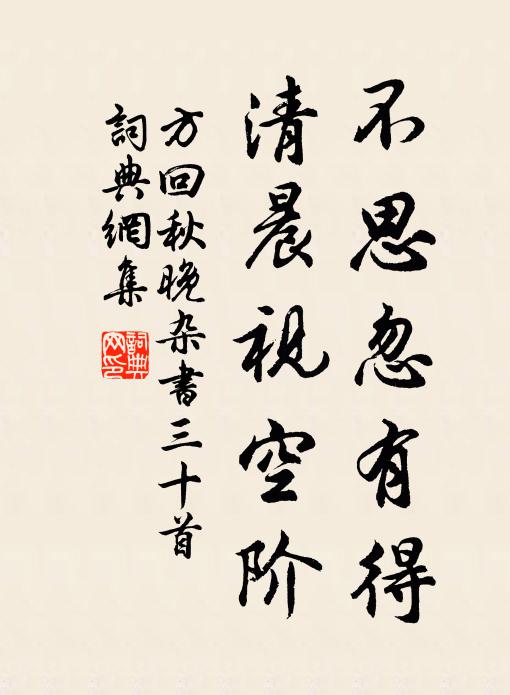 不思忽有得
清晨視空阶
方回秋晚杂書三十首
詞典網集
詞典网印